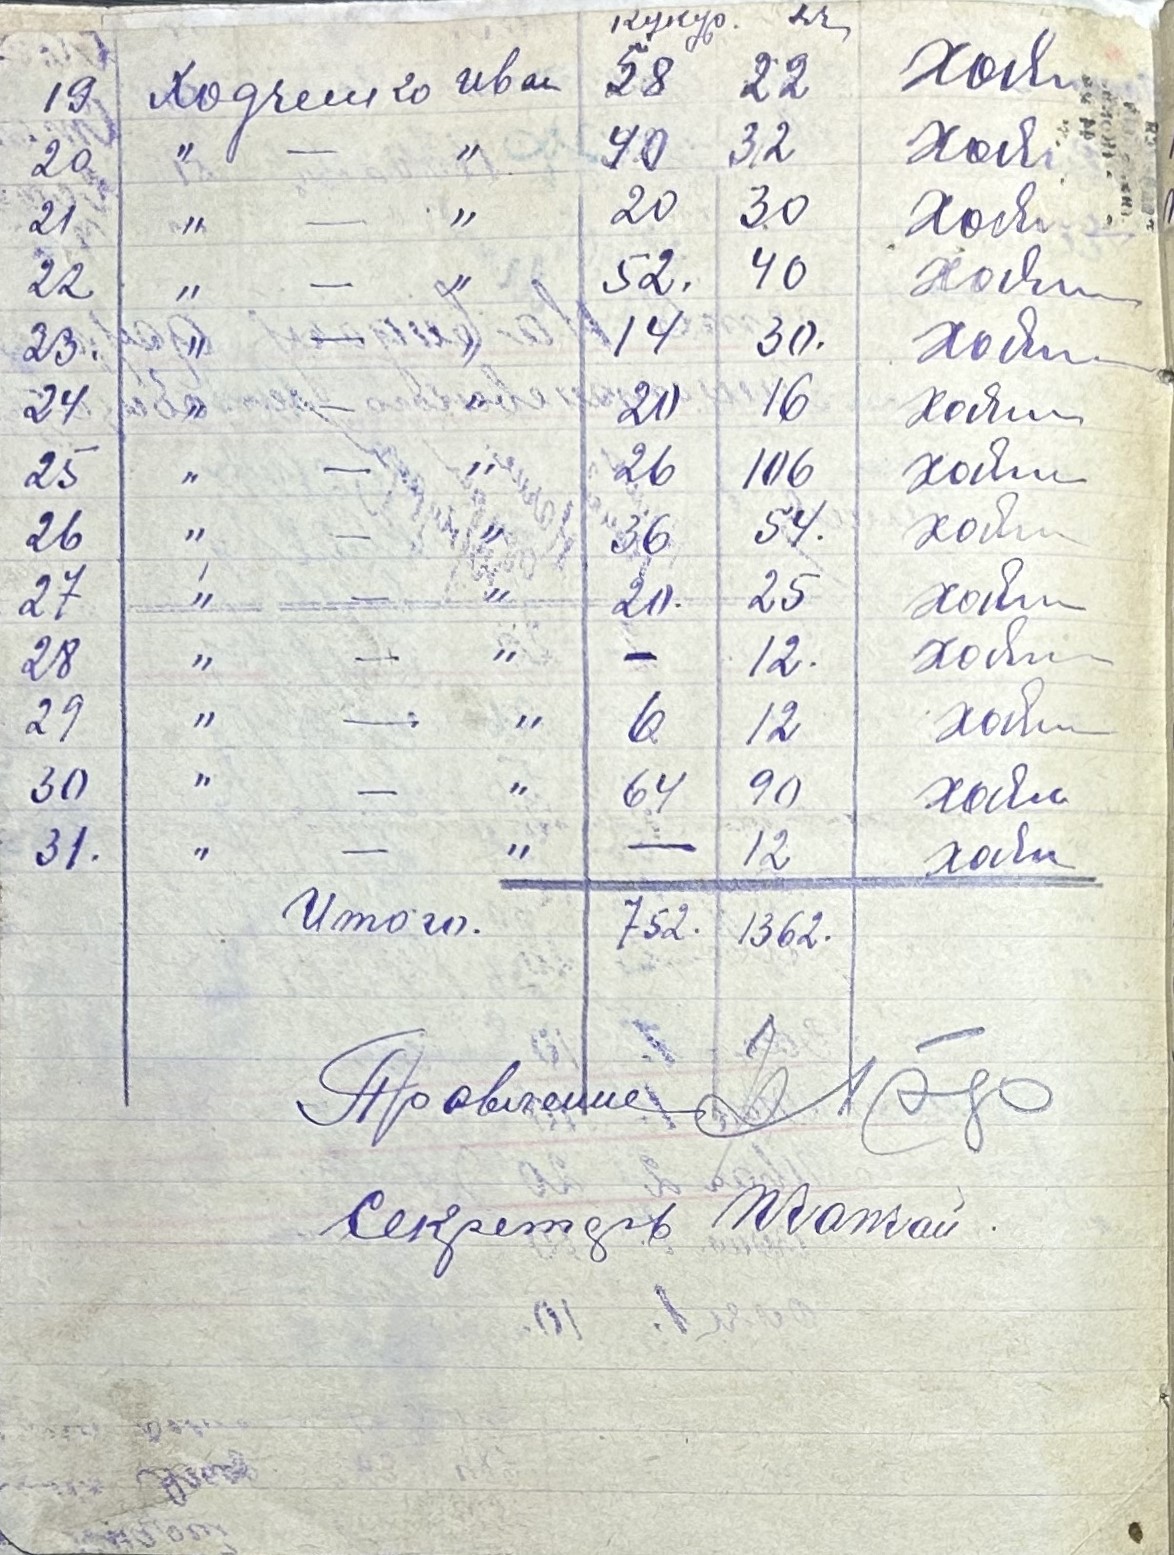 кукур.
19 Ходченко Иван 58 22 Ходч
20 " — " 40 32 Ходч
21 " — " 20 30 Ходч
22 " — " 52. 40 Ходч
23. " — " 14 30. Ходч
24 " — " 20 16 Ходч
25 " — " 26 106 Ходч
26 " — " 36 54. Ходч
27 " — " 20. 25 Ходч
28 " — " – 12. Ходч
29 " — " 6 12 Ходч
30 " — " 64 90 Ходч
31. " — " — 12 Ходч
Итого. 752. 1362.
Правление
Секретарь